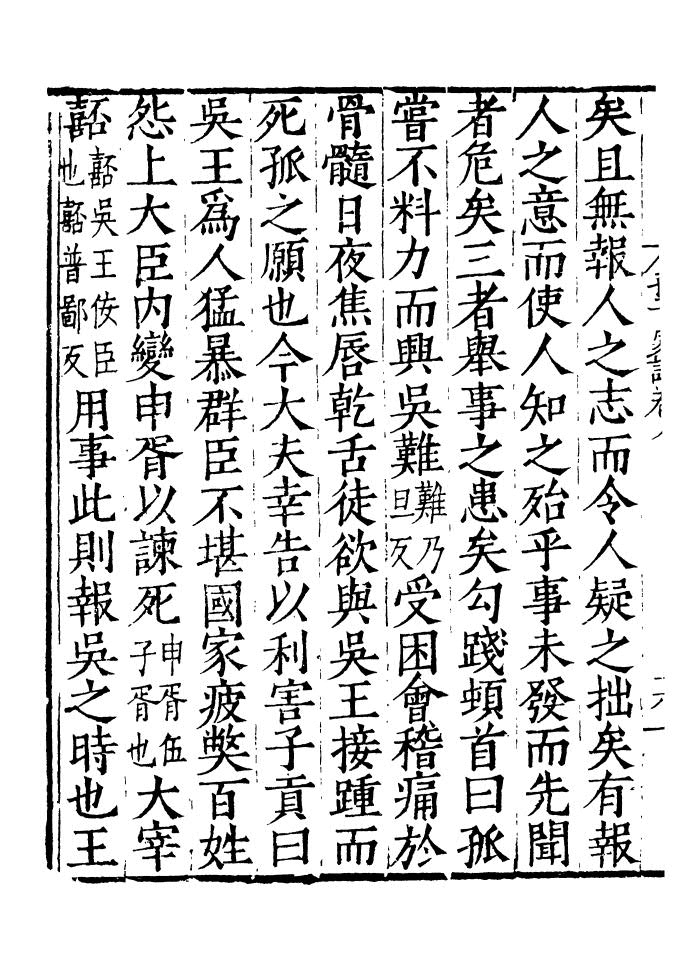 矣且無報人之志而令人疑之拙矣有報
人之意而使人知之殆乎事未發而先聞
者危矣三者舉事之患矣勾踐頓首曰孤
嘗不料力而興吳難難乃旦反受困會稽痛於
骨髓日夜焦唇乾舌徒欲與吳王接踵而
死孤之願也今大夫幸告以利害子貢曰
吳王爲人猛暴群臣不堪國家疲獘百姓
怨上大臣内變申胥以諫死申胥伍子胥也大宰
嚭嚭吳王佞臣也嚭普鄙反用事此則報吳之時也王